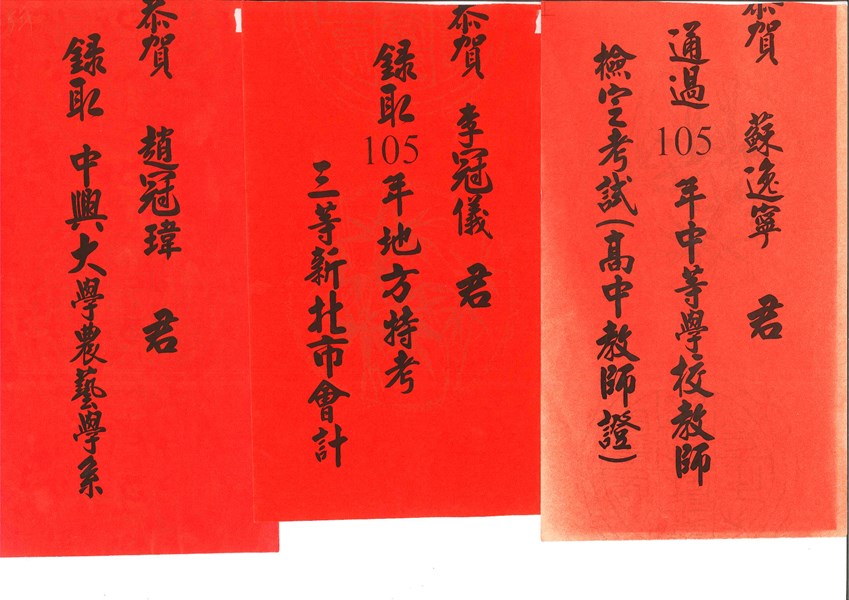 恭賀 蘇逸寧 君
通過105年中等學校教師
檢定考試(高中教師證)
恭賀 李冠儀 君
錄取105年地方特考
三等新北市會計
恭賀 趙冠瑋 君
錄取 中興大學農藝學系